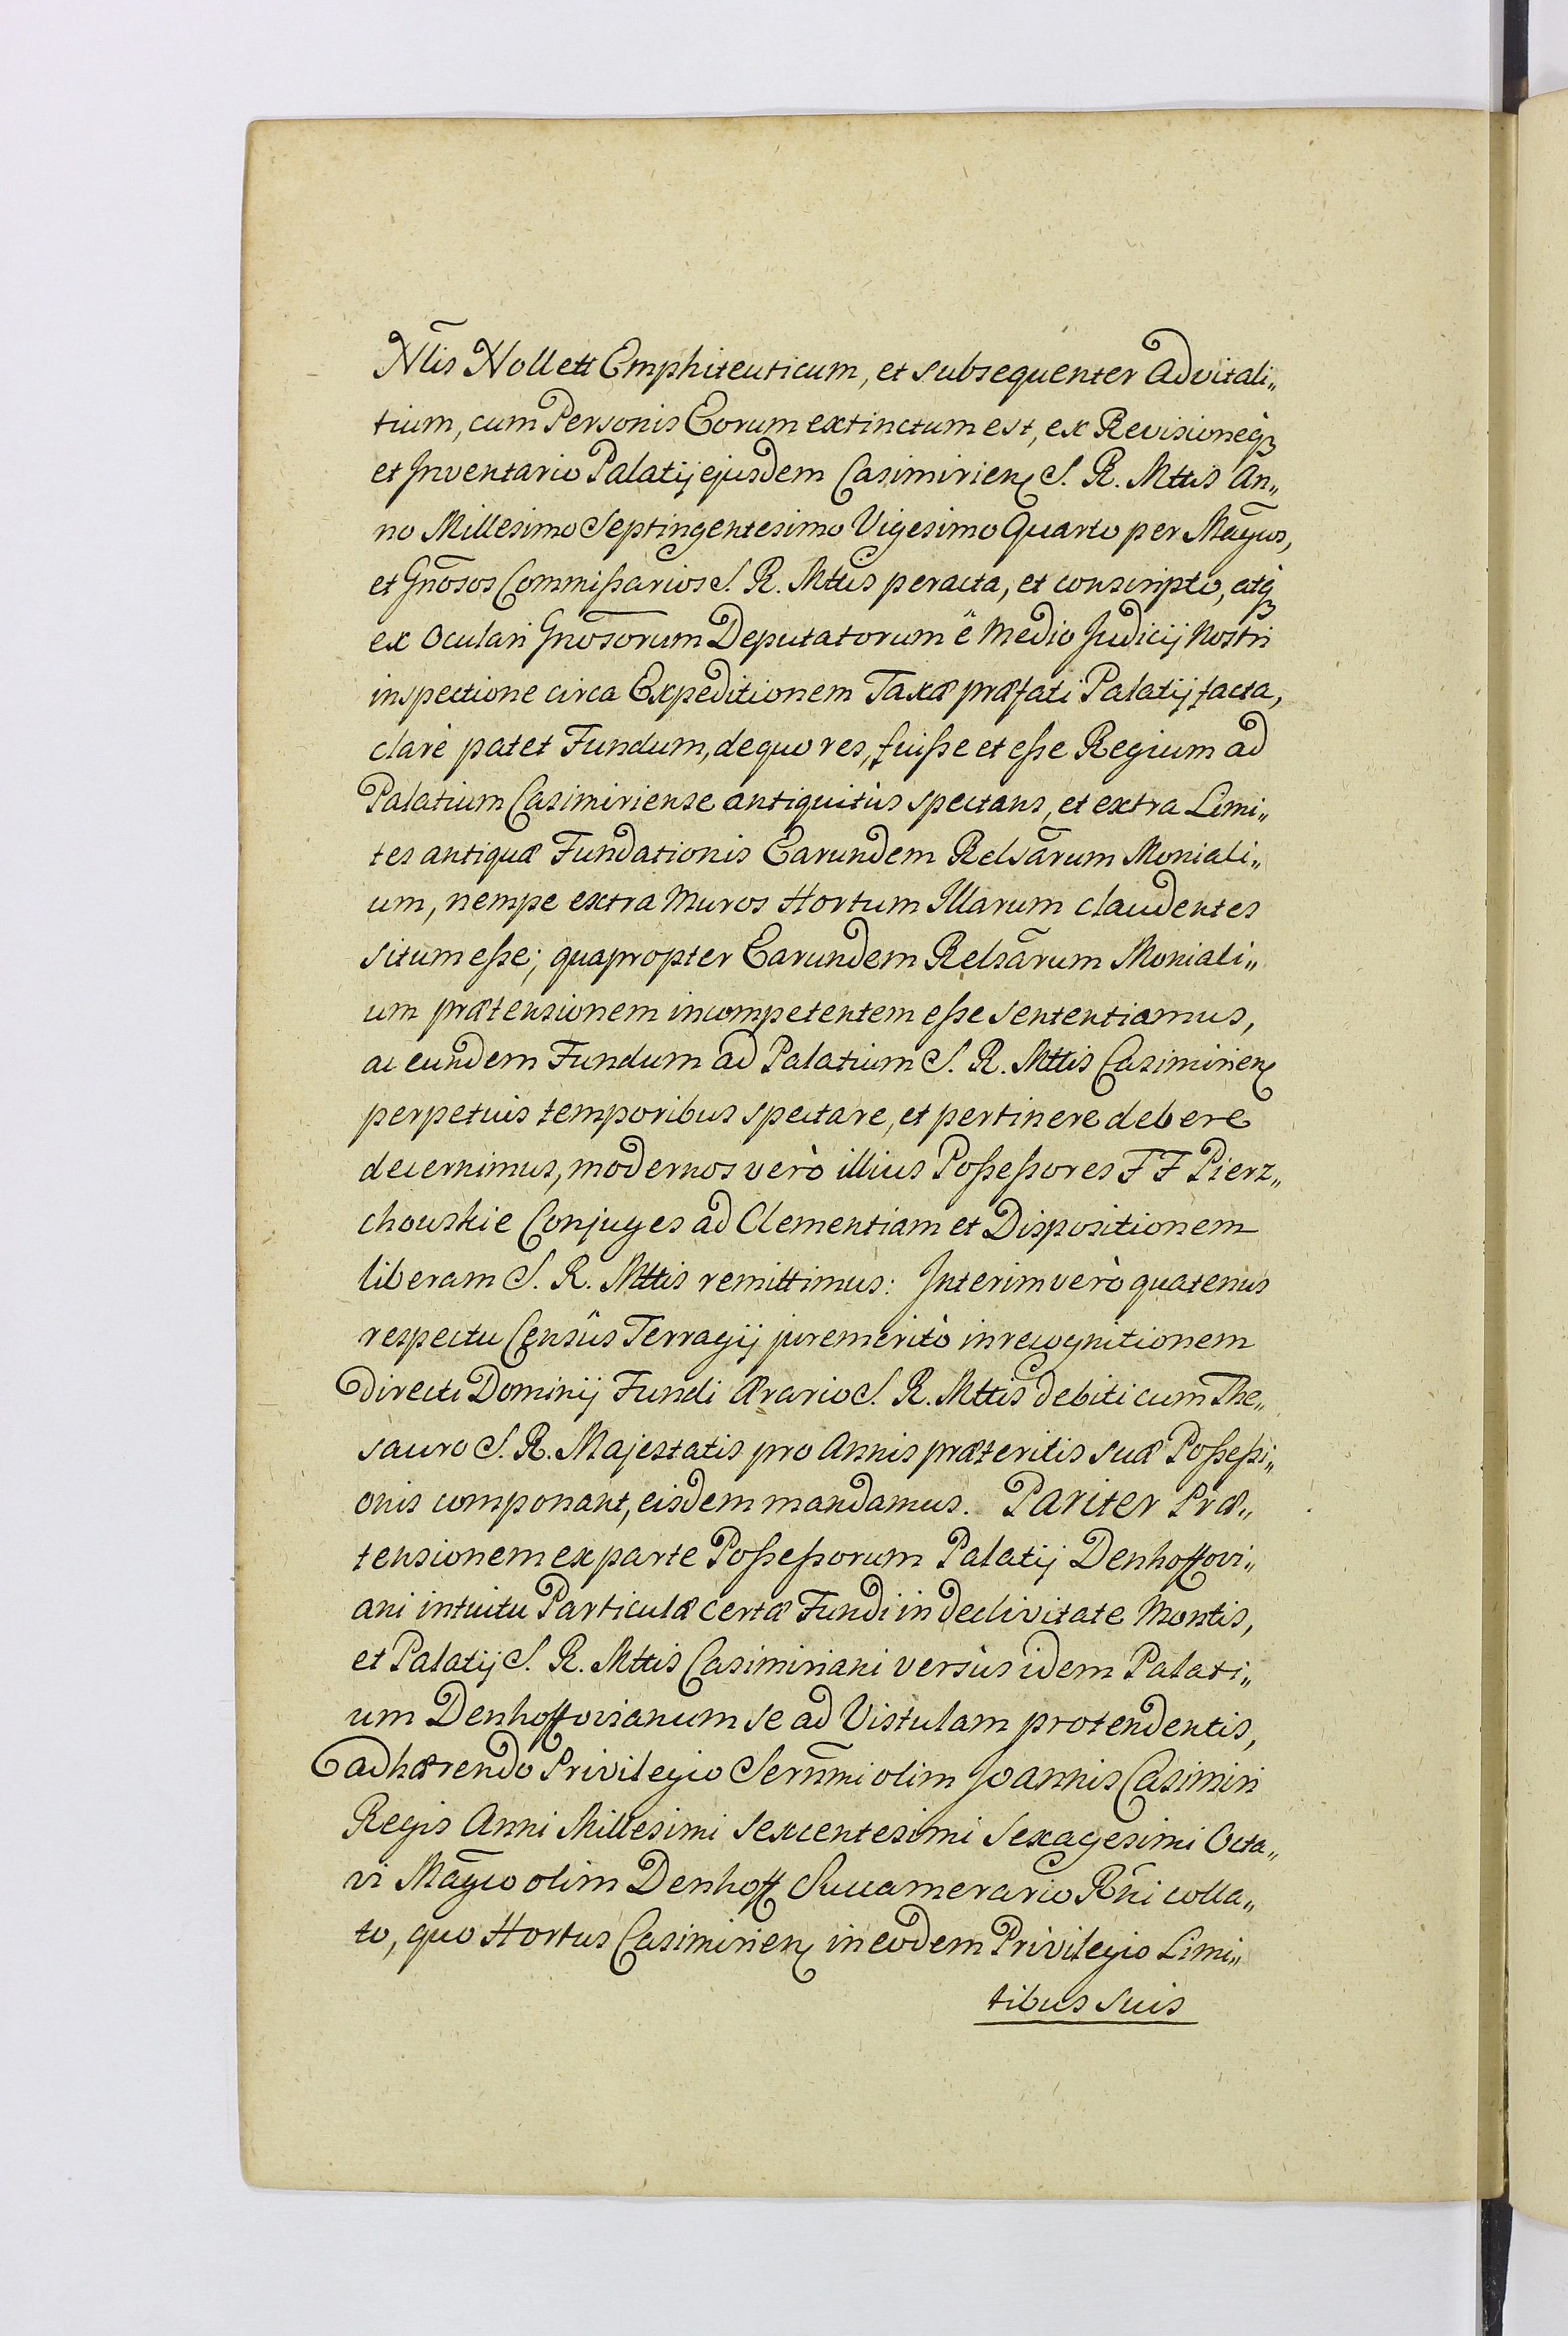 Nl̃is Nollett Emphiteuticum, et subsequenter Advitali„
tium, cum Personis Eorum extinctum est, ex Revisioneq̀ꝫ
et Inventario Palatij ejusdem Casimirien̨ S. R. Mttis An„
no Millesimo Septingentesimo Vigesimo Quarto per Mag̃cos,
et Gnõsos Commißarios S. R. Mttis peracta, et conscripto, atq̀ꝫ
ex Oculari Gnõsorum Deputatorum ë Medio Judicij Nostri
inspectione circa Expeditionem Taxæ præfati Palatij facta,
clarè patet Fundum, de quo res, fuiße et eße Regium ad
Palatium Casimiriense antiquitùs spectans, et extra Limi„
tes antiquæ Fundationis Earundem Relsãrum Moniali„
um, nempe extra Muros Hortum Illarum claudentes
situm eße; quapropter Earundem Relsãrum Moniali„
um prætensionem incompetentem eße sententiamus,
ac eundem Fundum ad Palatium S. R. Mttis Casimirien̨
perpetuis temporibus spectare, et pertinere debere
decernimus, modernos verò illius Poßeßores F F Pierz„
chowskie Conjuges ad Clementiam et Dispositionem
liberam S. R. Mttis remittimus: Interim verò quatenus
respectu Censûs Terragij jure meritò in recognitionem
directi Dominij Fundi Ærario S. R. Mttis debiti cum The„
sauro S. R. Majestatis pro Annis præteritis suæ Poßeßi„
onis componant, eisdem mandamus. Pariter Præ„
tensionem ex parte Poßeßorum Palatij Denhoffovi„
ani intuitu Particulæ certæ Fundi in declivitate Montis,
et Palatij S. R. Mttis Casimiriani versùs idem Palati„
um Denhoffovianum se ad Vistulam protendentis,
adhærendo Privilegio Serñmi olim Joannis Casimiri
Regis Anni Millesimi Sexcentesimi Sexagesimi Octa„
vi Mag̃co olim Denhoff Succamerario Rñi colla„
to, quo Hortus Casimirien̨ in eodem Privilegio Limi„
tibus suis